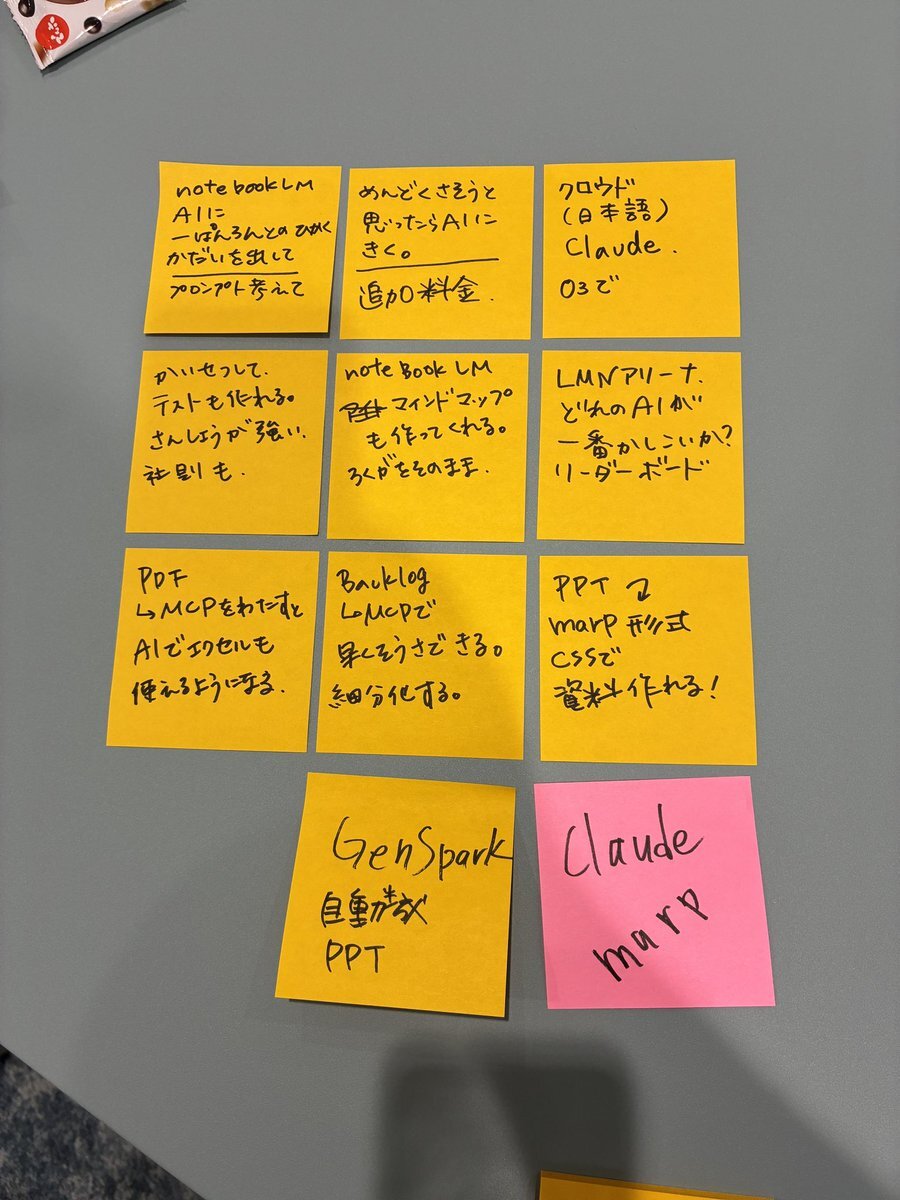 notebookLM
AIに
一ぱんろんとのひかく
かだいを出して
プロンプト考えて
めんどくさそうと
思ったらAIに
きく。
追加料金.
クロウド
(日本語)
Claude.
O3で
かいせつして.
テストも作れる。
さんしょうが強い.
社則も.
noteBookLM
マインドマップ
も作ってくれる。
ろくがをそのまま.
LMNアリーナ.
どれのAIが
一番かしこいか?
リーダーボード
PDF
↳MCPをわたすと
AIでエクセルも
使えるようになる.
Backlog
↳MCPで
早くそうさできる。
細分化する。
PPT
marp 形式
CSSで
資料作れる!
GenSpark
自動
PPT
Claude
marp